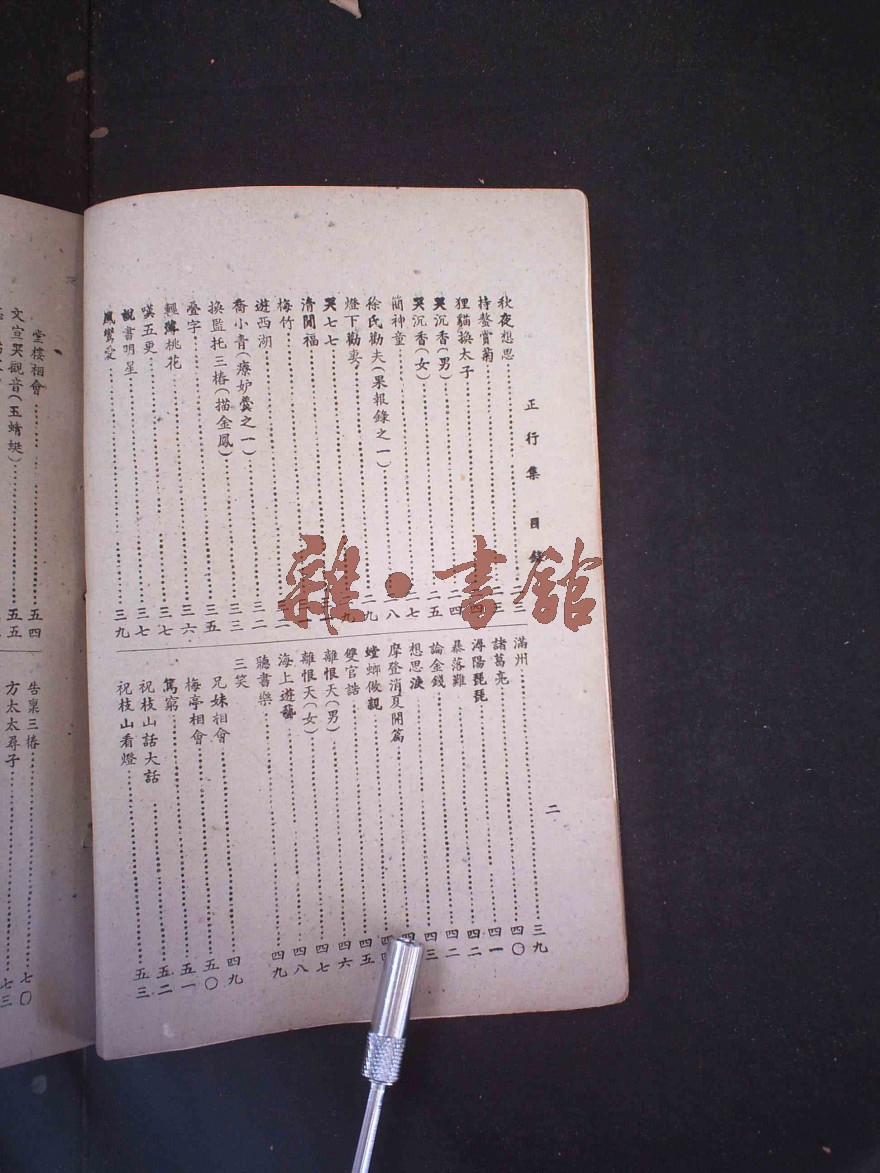 正行集 目錄
二
秋夜想思
持螯賞菊
狸貓換太子
哭沉香(男)
哭沉香(女)
簡神童
徐氏勸夫(果報錄之一)
燈下勸妻
哭七七
清閒福
梅竹
遊西湖
喬小青(療妒羹之一)……三三
換監托三樁(描金鳳)……三五
疊字……三六
輕薄桃花……三七
嘆五更……三七
說書明星……三七
鳳鸞愛……三九
滿州……三九
諸葛亮……四〇
潯陽琵琶……四一
暴落難……四二
論金錢……四二
想思淚
摩登消夏開篇
螳螂做親
雙官誥……四五
離恨天(男)……四六
離恨天(女)……四七
海上遊龍……四八
聽書樂……四九
三笑
兄妹相會……四九
梅亭相會……五〇
篤窮……五一
祝枝山話大話……五二
祝枝山看燈……五三
堂樓相會……五四
文宣哭觀音(玉蜻蜓)……五五
告稟三樁……七〇
方太太尋子……七三
雜·書館